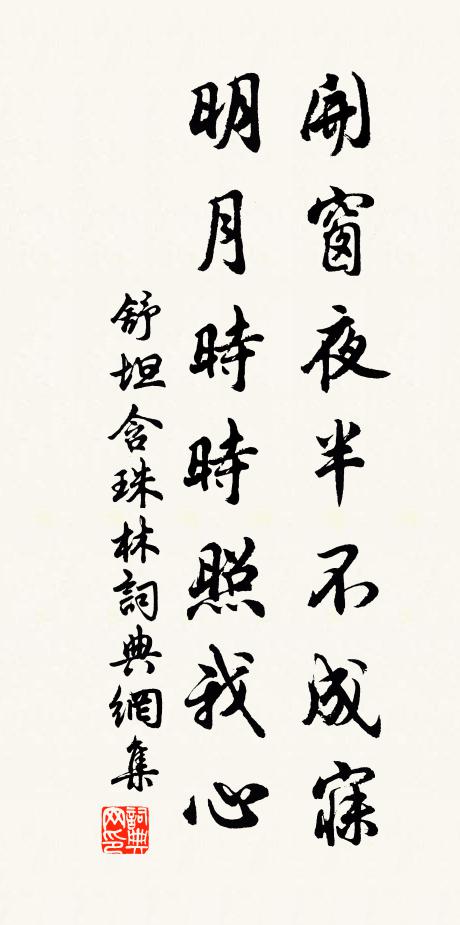 開窗夜半不成寐
明月時時照我心
舒坦含珠林詞典網集
詞典网印